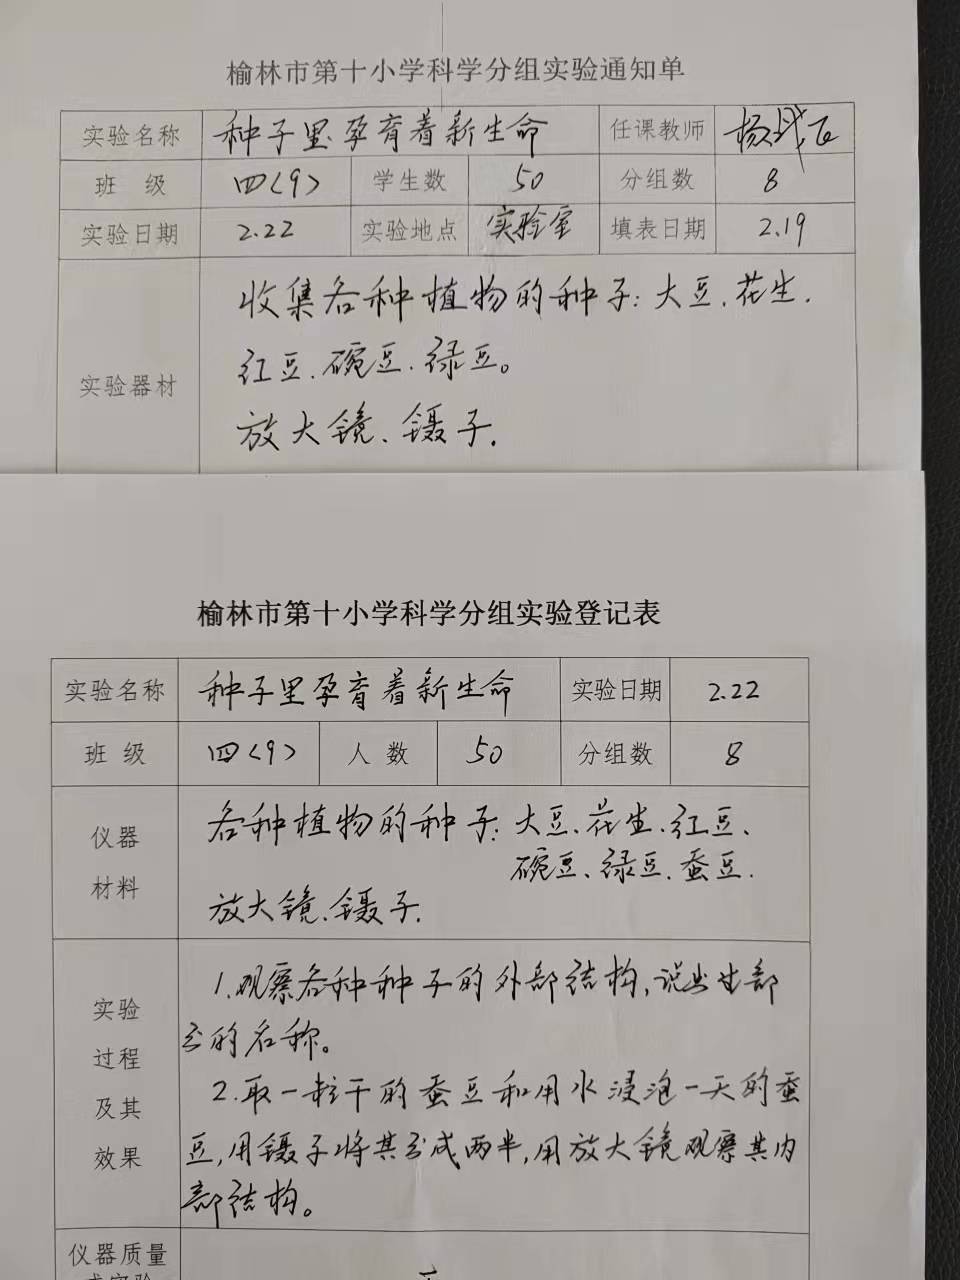 榆林市第十小学科学分组实验通知单
实验名称 种子里孕育着新生命 任课教师 杨
班 级 四(9) 学生数 50 分组数 8
实验日期 2.22 实验地点 实验室 填表日期 2.19
收集各种植物的种子:大豆.花生.
实验器材 红豆.碗豆.绿豆。
放大镜、镊子.
榆林市第十小学科学分组实验登记表
实验名称 种子里孕育着新生命 实验日期 2.22
班 级 四(9) 人 数 50 分组数 8
仪器 各种植物的种子:大豆、花生、红豆、
碗豆、绿豆.蚕豆.
材料 放大镜、镊子.
1.观察各种种子的外部结构,说出
实验 的名称。
过程 2.取一粒干的蚕豆和用水浸泡一天的蚕
及其 豆,用镊子将其分成两半,用放大镜观察其内
效果 部结构。
仪器质量